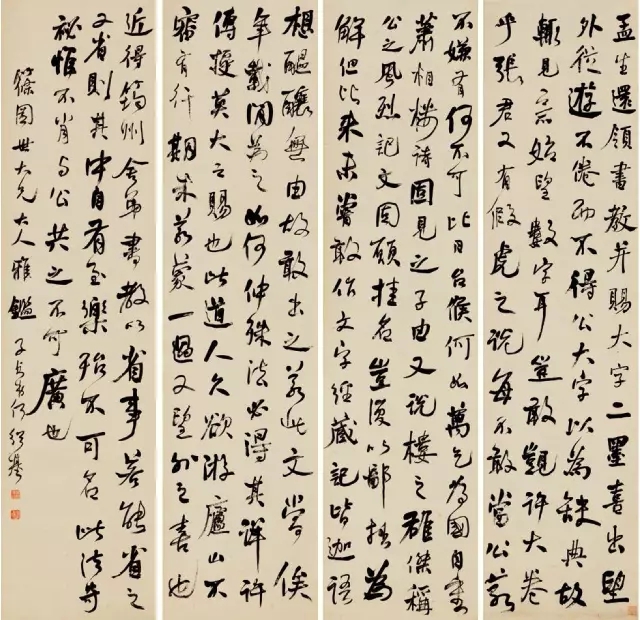 孟生還領書教并賜大字二墨喜出望
外從遊不倦而不得公大字以為缺典故
輒見意始望數字耳豈敢覬許大卷
乎張君又有假虎之說每不敢當公家
不嫌者何不可比日台候何如萬乞為國自重
蕭相樓詩固見之子由又說樓之雄傑稱
公之風烈記文固願挂名豈復以鄙拙為
解但以來未嘗敢作文字經藏記皆迦語
想醞釀無由故敢出之若此文嘗俟
年載間為之如何仲殊法必得其詳許
傳授莫大之賜也此道人久欲游廬山不
審有行期未若蒙一過又望外之喜也
近得筠州舍弟書教以省事若能省之
又省則其中自有至樂殆不可名此法奇
秘惟不肖与公共之不可廣也
篠園世大兄大人雅鑑 子貞弟何紹基